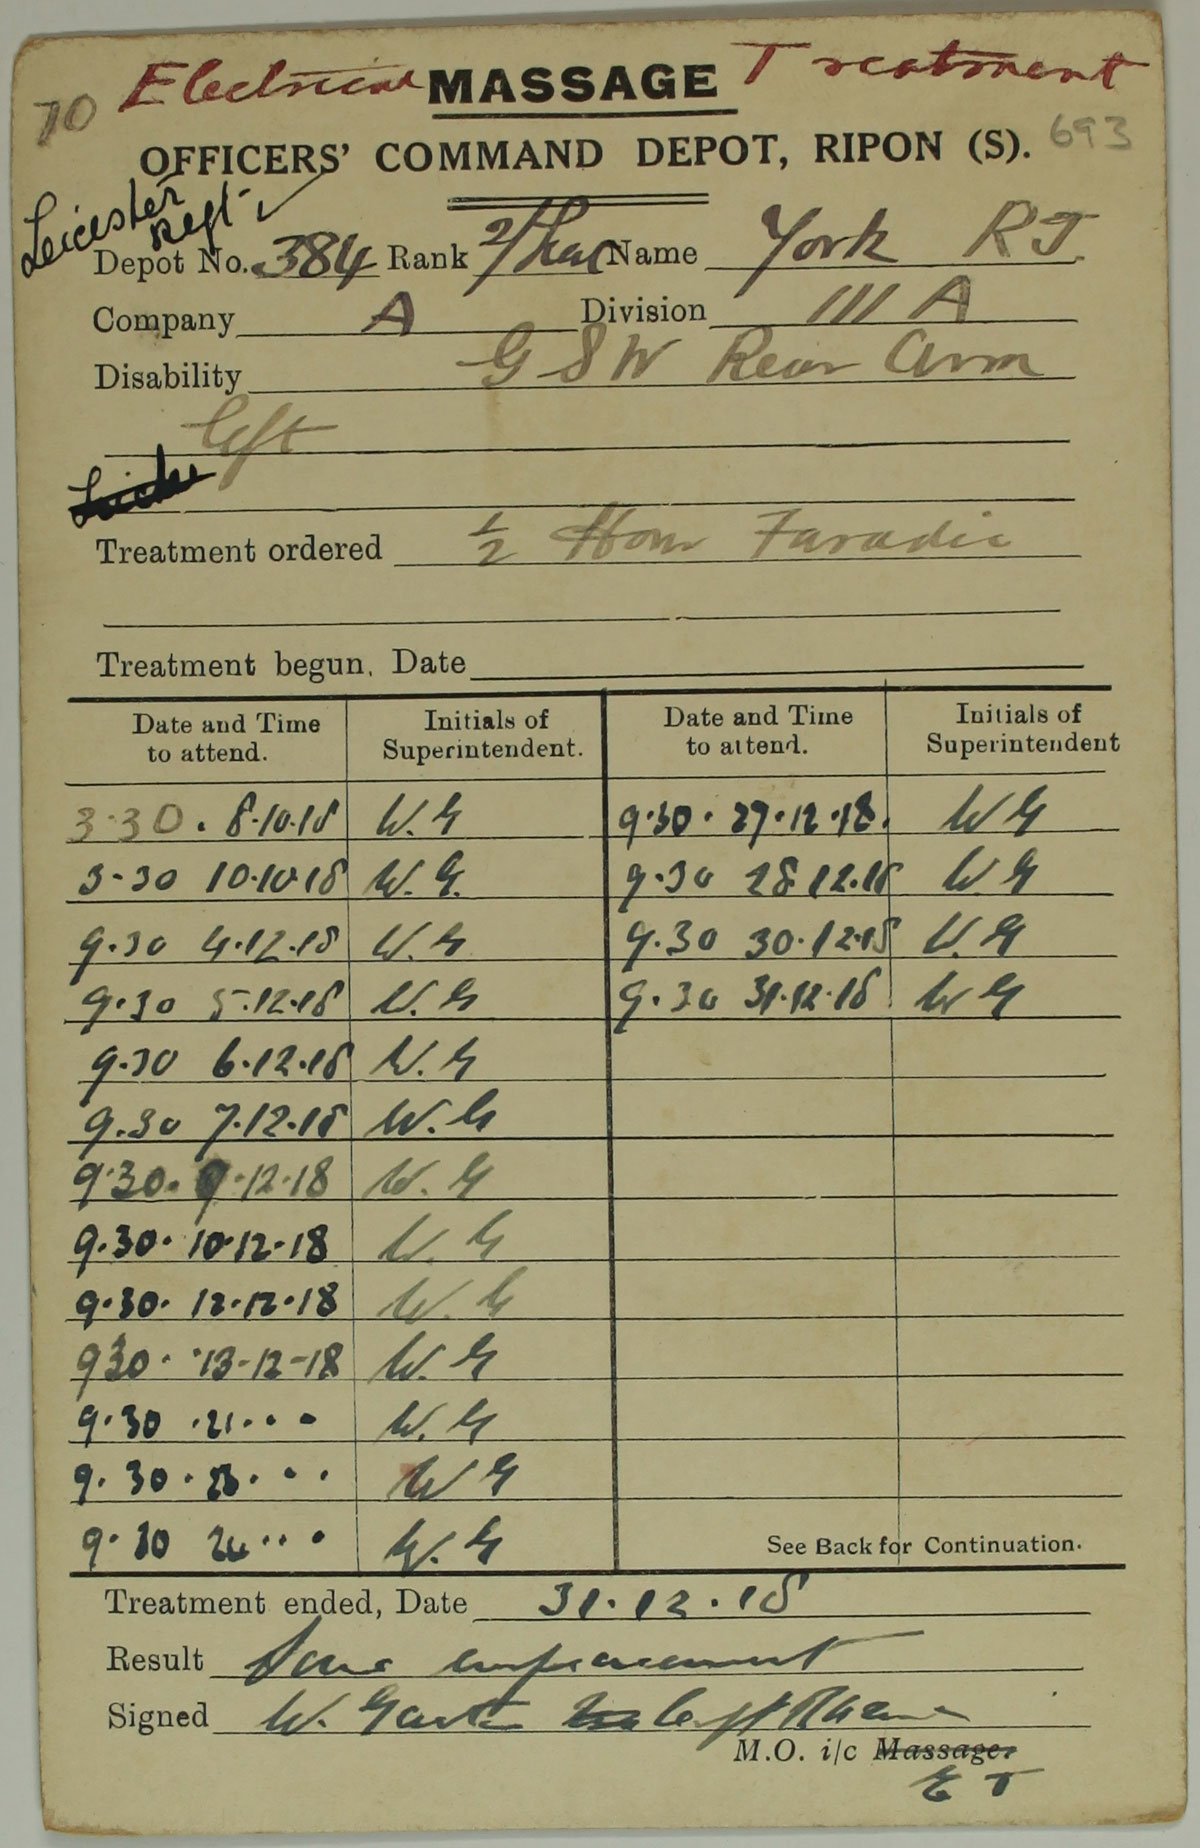 70 Electrical MASSAGE Treatment
OFFICERS' COMMAND DEPOT, RIPON (S). 693
Leicester
Regt
Depot No. 384 Rank 2/Lieut Name York R J
Company A Division III A
Disability G S W Rear Arm
left
Treatment ordered 1/2 Hour Faradic
Treatment begun, Date
Date and Time to attend. Initials of Superintendent. Date and Time to attend. Initials of Superintendent
3·30 . 8·10·18 W. G 9·30 · 27·12·18. W G
3-30 10·10·18 W. G. 9·30 28·12·18 W G
9·30 4·12·18 W. G 9·30 30·12·18 W. G
9·30 5·12·18 W. G 9·30 31·12·18 W G
9·30 6·12·18 W. G
9·30 7·12·18 W. G
9·30. 9·12·18 W. G
9·30· 10·12·18 W. G
9·30· 12·12·18 W. G
930· 13-12-18 W. G
9·30 ·21· · · W. G
9·30 · 23 · · · W G
9·30 24 · · · W. G
See Back for Continuation.
Treatment ended, Date 31·12·18
Result Some improvement
Signed W. Capt RAMC
M.O. i/c Massage.
E T